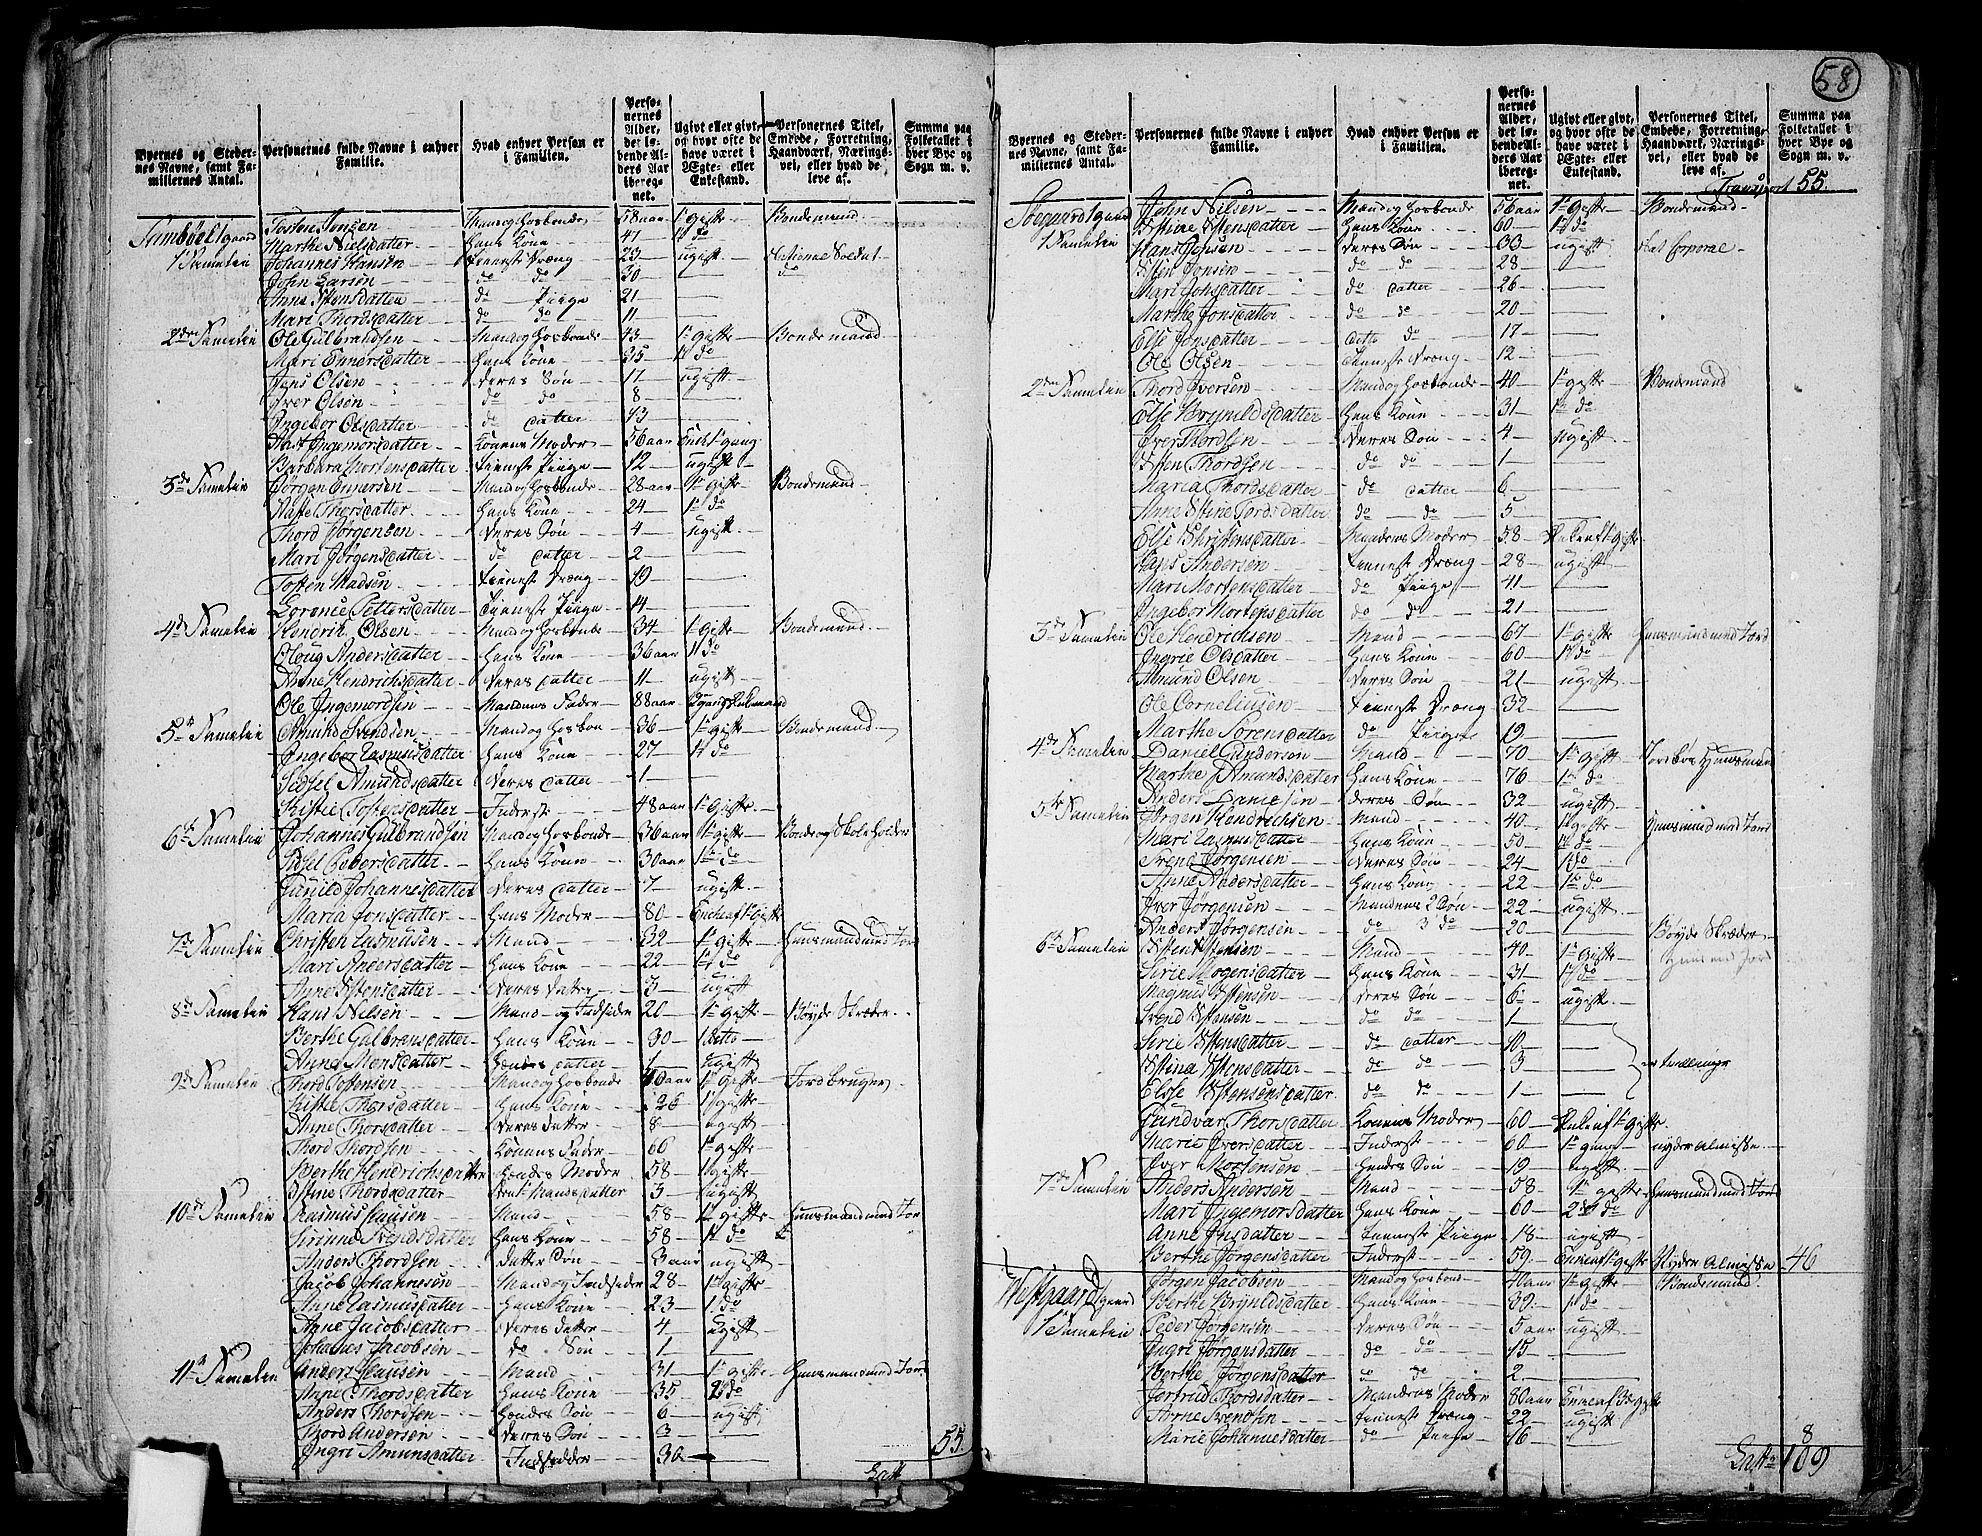 Byernes og Stedernes Navne, samt Familiernes Antal.
Personernes fulde Navne i enhver Familie.
Hvad enhver Person er i Familien.
Personernes Alder, det løbende Alders Aar iberegnet.
Ugivt eller givt, og hvor ofte de have været i Ægte- eller Enkestand.
Personernes Titel, Embede, Forretning, Haandværk, Næringsvei, eller hvad de leve af.
Summa paa Folketallet i hver Bye og Sogn m. v.
Tosten Jensen Mand og Hosbonde 58 aar 1te gifte Bondemand
1te Familie Marthe Nielsdatter Hans Kone 41 1te do
Johannes Hansen Tieneste Dræng 23 ugift National Soldat
John Larsen do do 30 do
Anne Istensdatter do Piige 21
Mari Thordsdatter do do 11
2den Familie Ole Gulbrandsen Mand og Hosbonde 43 1te gifte Bondemand
Mari Enersdatter Hans Kone 35 1te do
Jens Olsen deres Søn 17 ugift
Iver Olsen do do 8
Ingebor Olsdatter do datter 13
Ingemorsdatter Konens Moder 56 aar
Barbara Mortensdatter tieneste Piige 12 ugift
3de Familie Jørgen Enersen Mand og Hosbonde 28 aar 1te gifte Bondemand
Thorsdatter Hans Kone 24 1te do
Thord Jørgensen deres Søn 4 ugift
Mari Jørgensdatter do datter 2
Tosten Madsen tieneste Dræng 19
Lorence Pettersdatter tieneste Piige 14
4de Familie Hendrik Olsen Mand og Hosbonde 34 1te gifte Bondemand
Oloug Andersdatter Hans Kone 36 aar 1te do
Anne Hendrichsdatter deres datter 11 ugift
Ole Ingemordsen Mandens Fader 88 aar
5te Familie Amund Svendsen Mand og Hosbon 36 1te gift Bondemand
Ingebor Rasmusdatter Hans Kone 27 1te do
Sidsel Amundsdatter deres datter 1
Kistie Tostensdatter Inderst 48 aar 1te gifte
6te Familie Johannes Gulbrandsen Mand og Hosbonde 36 aar 1te gifte Bonde og Skoleholder
Sidsel Pedersdatter Hans Kone 30 aar 1te do
Gunild Johannesdatter deres datter 7 ugift
Maria Jonsdatter Hans Moder 80 Enke af 1te gifte
7de Familie Christen Rasmusen Mand 32 1te gifte Huusmand med Jord
Mari Andersdatter Hans Kone 22 1te do
Anne Istensdatter deres datter 3 ugift
8de Familie Hans Nilsen Mand og Indsidder 20 1te gifte Bøyde Skræder
Berthe Gulbrensdatter Hans Kone 30 1 ditto
Anne Mensdatter Hendes datter 1 ugift
9de Familie Thord Tostensen Mand og Hosbonde 40 aar 1te gifte Jordbruger
Kistie Thorsdatter Hans Kone 26 1te gifte
Anne Thorsdatter deres datter 8 ugift
Thord Thordsen Konens Fader 66 1te gifte
Berthe Hendrichsdatter Hendes Moder 58 1te gifte
Istine Thordsdatter 3 ugift
10de Familie Rasmus Hansen Mand 58 1te gifte Huusmand med Jor
Sirinne Svendsdatter Hans Kone 58 1te do
Anders Thordsen datter Søn 3 aar ugift
Jacob Johannesen Mand og Indsidder 28 1te gifte
Anne Rasmusdatter Hans Kone 23 1 do
Anne Jacobsdatter deres datter 4 ugift
Johanes Jacobsen do Søn 1
11te Familie Anders Hansen Mand 31 1te gifte Huusmand med Jord
Anne Thordsdatter Hans Kone 35 2 do
Anders Thordsen Hendes Søn 6 ugift
Thord Andersen deres Søn 3
Ingri Amunsdatter Indsidder 30
55
Latt
58
Byernes og Stedernes Navne, samt Familiernes Antal.
Personernes fulde Navne i enhver Familie.
Hvad enhver Person er i Familien.
Personernes Alder, det løbende Alders Aar iberegnet.
Ugivt eller givt, og hvor ofte de have været i Ægte- eller Enkestand.
Personernes Titel, Embede, Forretning, Haandværk, Næringsvei, eller hvad de leve af.
Summa paa Folketallet i hver Bye og Sogn m. v.
Transport 55
John Nilsen Mand og Hosbonde 56 aar 1te gifte Bondemand
1 Familie Istine Istensdatter Hans Kone 60 1te do
Hans Jonsen deres Søn 33 ugift Corporal
Isten Jonsen do do 28
Mari Jonsdatter do datter 26
Marthe Jonsdatter do do 20
Else Jonsdatter ditto do 17
Ole Olsen tieneste Dræng 12
2den Familie Thord Iversen Mand og Hosbonde 40 1te gifte Bondemand
Else Brynildsdatter Hans Kone 31 1te do
Iver Thordsen deres Søn 4 ugift
Isten Thordsen do do 1
Maria Thordsdatter do datter 6
Anne Stine Tordsdatter do do 5
Else Christensdatter Mandens Moder 58 Enke af 1te gifte
Lars Andersen tieneste Dræng 28 ugift
Mari Mortensdatter do Piige 41
Ingebor Mortensdatter do do 21
3de Familie Ole Hendrichsen Mand 67 1te gifte Huusmand med Jord
Ingrie Olsdatter Hans Kone 60 1te do
Amund Olsen deres Søn 21 ugift
Ole Corneliusen tieneste Dræng 32
Marthe Sorensdatter do Piige 19
4de Familie Daniel Gundersen Mand 70 1te gift Huusmand
Marthe Amundsdatter Hans Kone 76 1te do
Anders Danielsen deres Søn 32 ugift
5te Familie Jørgen Hendrichsen Mand 40 1te gifte Huusmand med Jord
Mari Rasmusdatter Hans Kone 50 1te do
Svend Jørgensen deres Søn 24 1te do
Anne Andersdatter Hans Kone 22 1te do
Iver Jørgensen Mandens 2 Søn 22 ugift
Anders Jørgensen do 3 do 20 Bøyde Skræder
6te Familie Isten Istensen Mand 40 1te gifte Huusmand Jord
Serie Mogensdatter Hans Kone 31 1te do
Magnus Istensen deres Søn 6 ugift
Svend Istensen do do 1
Serie Istensdatter do datter 10
Istina Istensdatter do do 3 er tvillinge
Else Istensensdatter do do 1
Gundvar Thorsdatter Konens Moder 60 Enke af 1te gifte
Marie Iversdatter Inderst 60 1te gang nyder Almisse
Iver Mortensen Hendes Søn 19 ugift
7de Familie Anders Andersen Mand 58 1te gifte Huusmand med Jord
Mari Ingemorsdatter Hans Kone 60 2den do
Anne Jnsdatter tieneste Piige 18 ugift
Berthe Jørgensdatter Inderst 59 Enke af 1te gifte Nyder Almisse 46
Westgaard Jørgen Jacobsen Mand og Hosbond 40 aar 1te gifte Bondemand
Berthe Brynildsdatter Hans Kone 39 1te do
1te Familie Peder Jørgensen deres Søn 5 aar ugift
Ingri Jørgensdatter do do 15
Berthe Jørgensdatter do do 2
Jertrud Thordsdatter Mandens Moder 80 aar
Arne Svendsen tieneste Dræng 22 ugift
Marie Johannesdatter do Piige 16 8
Latt 109